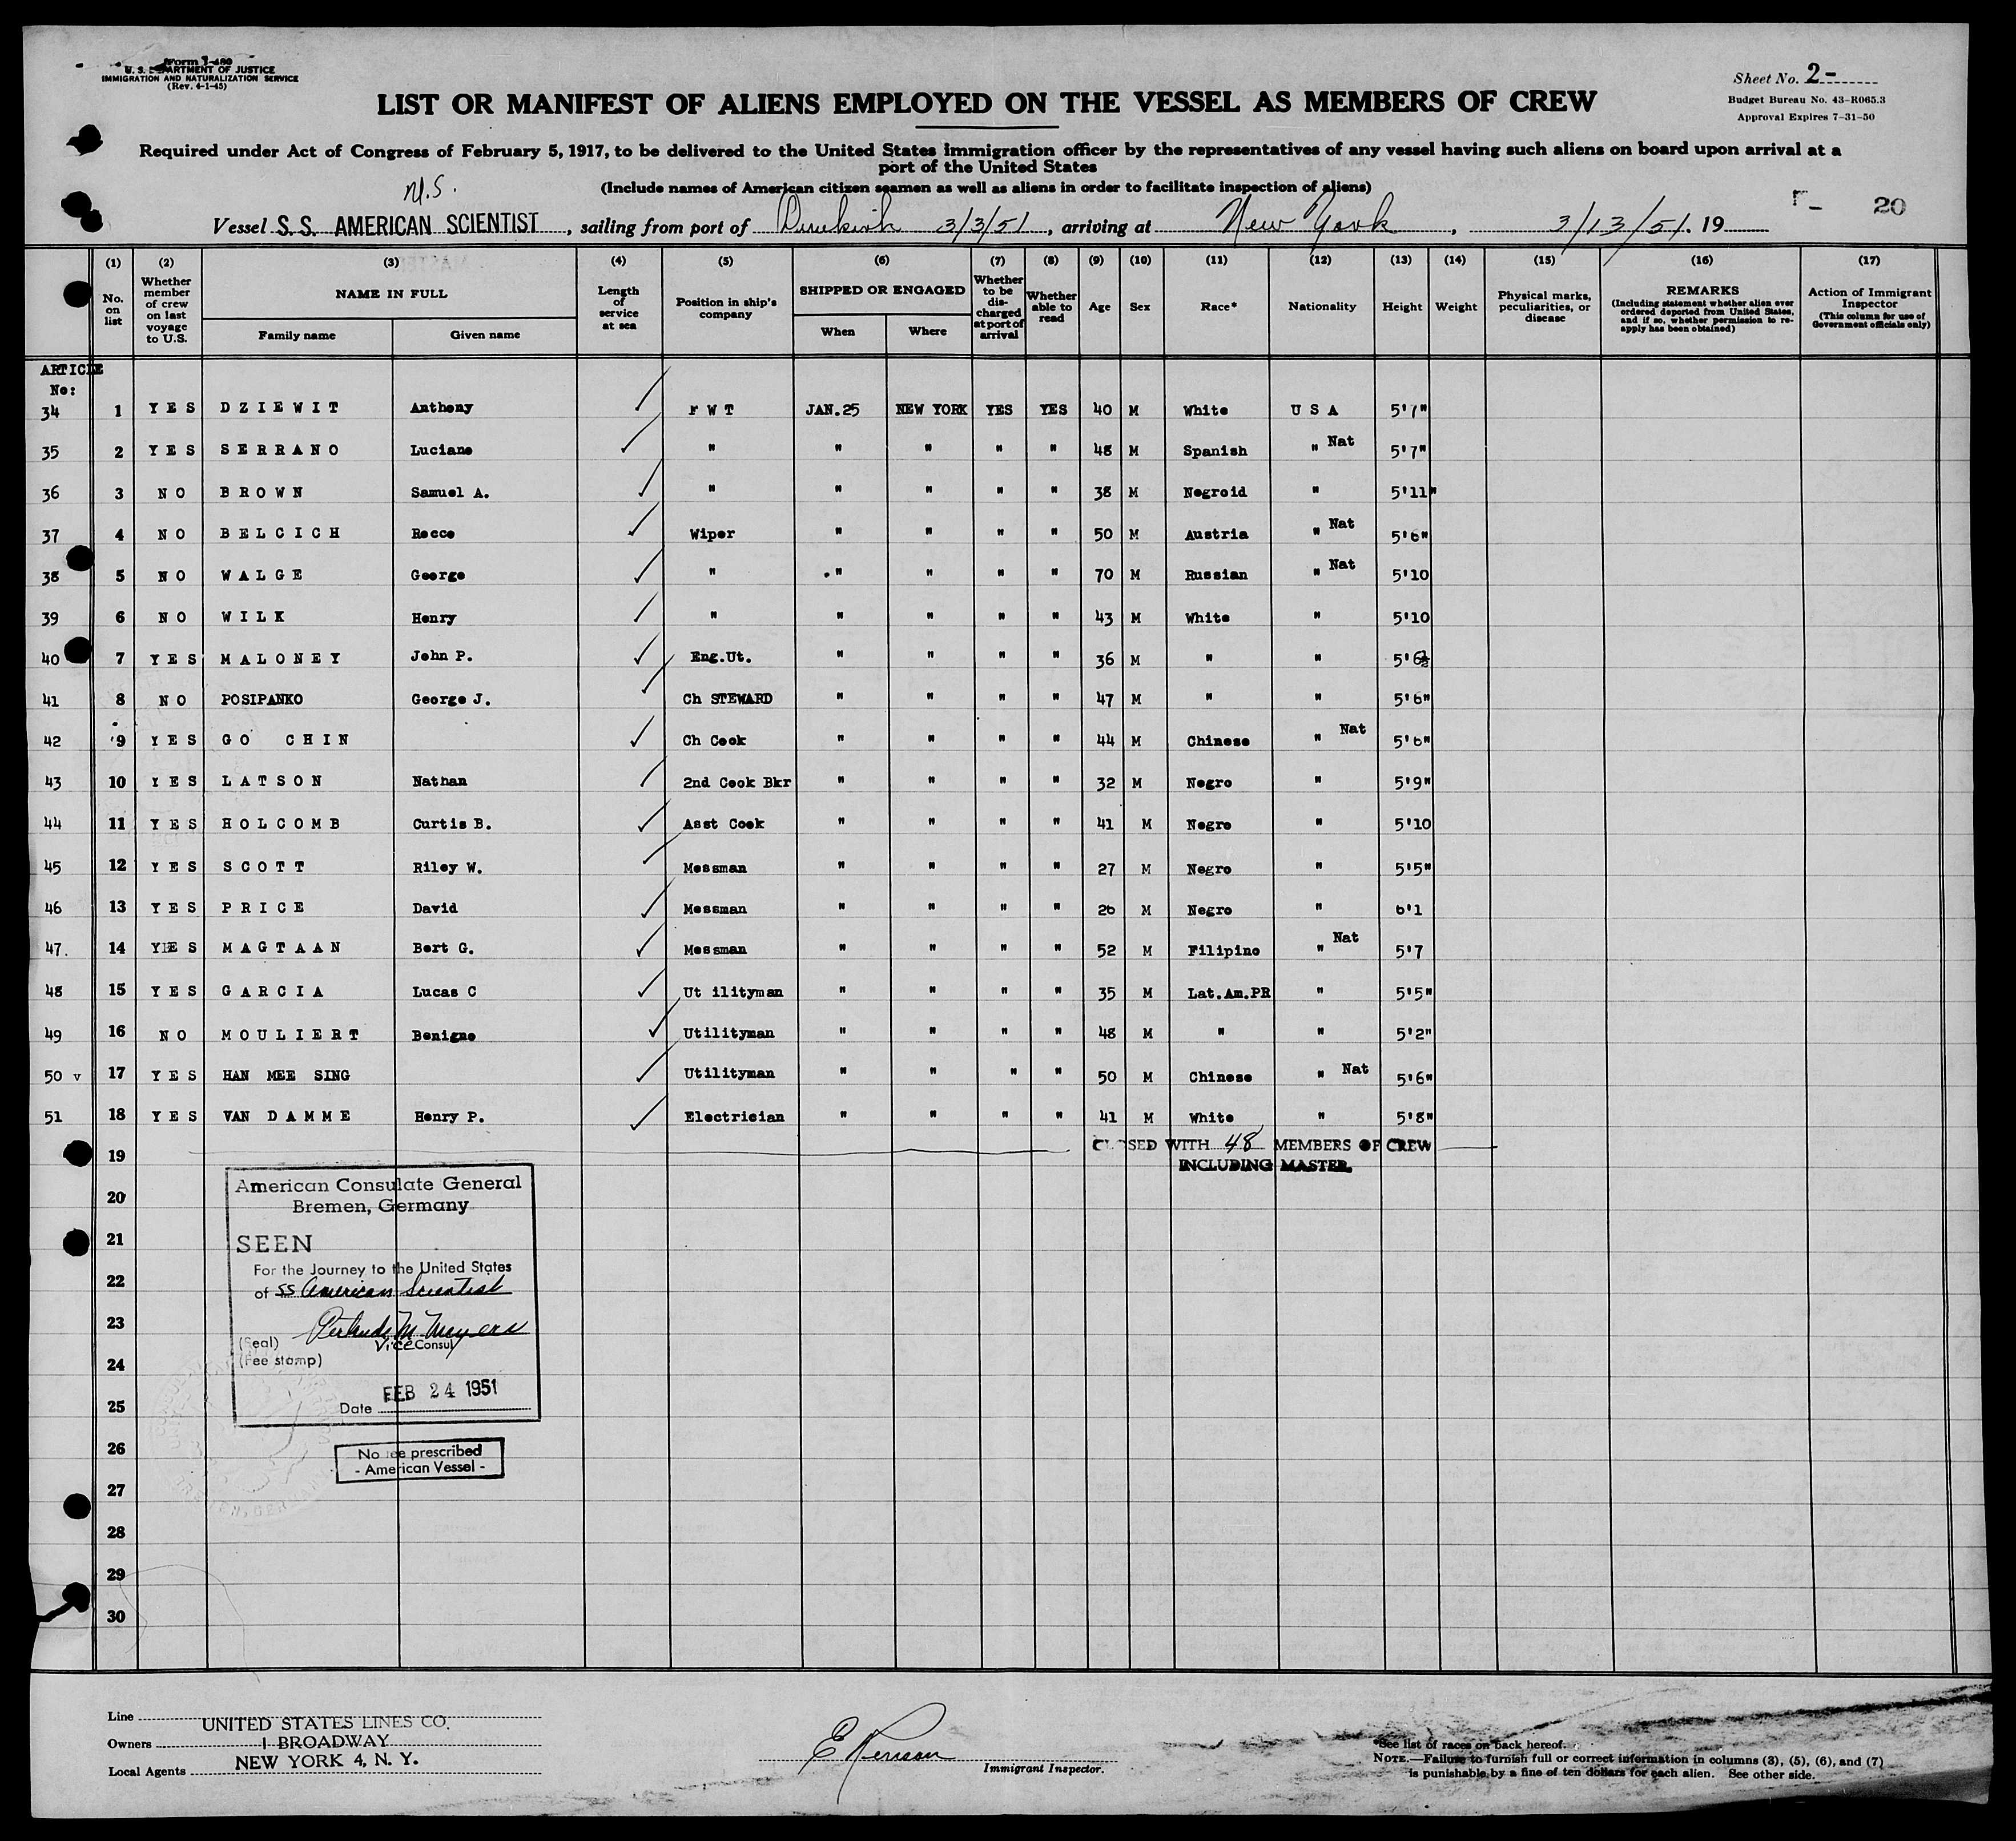 Form I-480
U. S. DEPARTMENT OF JUSTICE
IMMIGRATION AND NATURALIZATION SERVICE
(Rev. 4-1-45)
Sheet No. 2-
Budget Bureau No. 43-R065.3
Approval Expires 7-31-50
LIST OR MANIFEST OF ALIENS EMPLOYED ON THE VESSEL AS MEMBERS OF CREW
Required under Act of Congress of February 5, 1917, to be delivered to the United States immigration officer by the representatives of any vessel having such aliens on board upon arrival at a
port of the United States
(Include names of American citizen seamen as well as aliens in order to facilitate inspection of aliens)
M.S.
Vessel S. S. AMERICAN SCIENTIST, sailing from port of Dunkirk 3/3/51, arriving at New York, 3/13/51. 19
20
(1) (2) (3) (4) (5) (6) (7) (8) (9) (10) (11) (12) (13) (14) (15) (16) (17)
No. on list
Whether member of crew on last voyage to U.S.
NAME IN FULL
Family name
Given name
Length of service at sea
Position in ship's company
SHIPPED OR ENGAGED
When
Where
Whether to be discharged at port of arrival
Whether able to read
Age
Sex
Race*
Nationality
Height
Weight
Physical marks, peculiarities, or disease
REMARKS
(Including statement whether alien ever ordered deported from United States, and if so, whether permission to reapply has been obtained)
Action of Immigrant Inspector
(This column for use of Government officials only)
ARTICLE
No:
34 1 YES DZIEWIT Anthony F W T JAN.25 NEW YORK YES YES 40 M White U S A 5'7"
35 2 YES SERRANO Luciano " " " " " 48 M Spanish " Nat 5'7"
36 3 NO BROWN Samuel A. " " " " " 38 M Negroid " 5'11"
37 4 NO BELCICH Rocco Wiper " " " " 50 M Austria " Nat 5'6"
38 5 NO WALGE George " " " " " 70 M Russian " Nat 5'10
39 6 NO WILK Henry " " " " " 43 M White " 5'10
40 7 YES MALONEY John P. Eng.Ut. " " " " 36 M " " 5'6½
41 8 NO POSIPANKO George J. Ch STEWARD " " " " 47 M " " 5'6"
42 9 YES GO CHIN Ch Cook " " " " 44 M Chinese " Nat 5'6"
43 10 YES LATSON Nathan 2nd Cook Bkr " " " " 32 M Negro " 5'9"
44 11 YES HOLCOMB Curtis B. Asst Cook " " " " 41 M Negro " 5'10
45 12 YES SCOTT Riley W. Messman " " " " 27 M Negro " 5'5"
46 13 YES PRICE David Messman " " " " 26 M Negro " 6'1
47. 14 YES MAGTAAN Bert G. Messman " " " " 52 M Filipino " Nat 5'7
48 15 YES GARCIA Lucas C Ut ilityman " " " " 35 M Lat.Am.PR " 5'5"
49 16 NO MOULIERT Benigno Utilityman " " " " 48 M " " 5'2"
50 v 17 YES HAN MEE SING Utilityman " " " " 50 M Chinese " Nat 5'6"
51 18 YES VAN DAMME Henry P. Electrician " " " " 41 M White " 5'8"
19 CLOSED WITH 48 MEMBERS OF CREW
INCLUDING MASTER.
20
21
22
23
24
25
26
27
28
29
30
American Consulate General
Bremen, Germany
SEEN
For the Journey to the United States
of SS American Scientist
Gertrude M Meyers
(Seal) Vice Consul
(Fee stamp)
FEB 24 1951
Date
No fee prescribed
- American Vessel -
Line
Owners
Local Agents
UNITED STATES LINES CO.
1 BROADWAY
NEW YORK 4, N. Y.
Immigrant Inspector.
*See list of races on back hereof.
NOTE.—Failure to furnish full or correct information in columns (3), (5), (6), and (7)
is punishable by a fine of ten dollars for each alien. See other side.